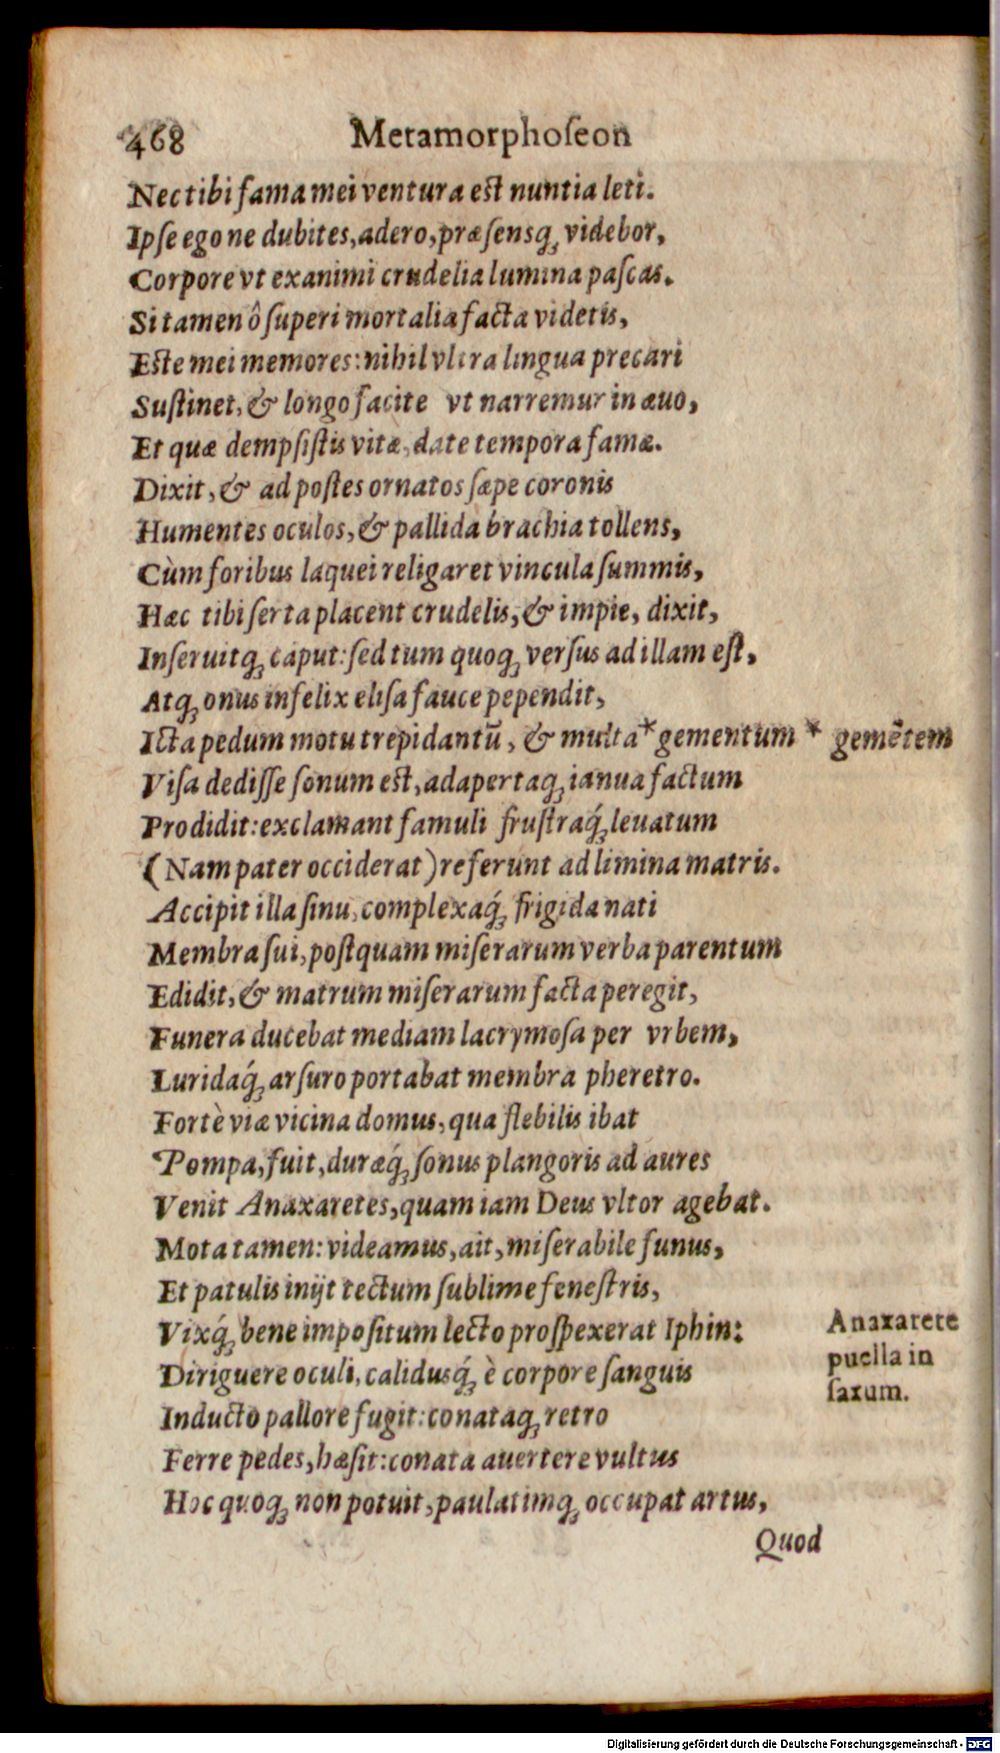 468 Metamorphoſeon
Nec tibi fama mei ventura eſt nuntia leti.
Ipſe ego ne dubites, adero, præſensq́; videbor,
Corpore vt exanimi crudelia lumina paſcas.
Si tamen ô ſuperi mortalia facta videtis,
Eſte mei memores: nihil vltra lingua precari
Suſtinet, & longo facite vt narremur in æuo,
Et quæ dempſiſtis vitæ, date tempora famæ.
Dixit, & ad poſtes ornatos ſæpe coronis
Humentes oculos, & pallida brachia tollens,
Cùm foribus laquei religaret vincula ſummis,
Hæc tibi ſerta placent crudelis, & impie, dixit,
Inſeruitq; caput: ſed tum quoq; verſus ad illam eſt,
Atq; onus infelix eliſa fauce pependit,
Icta pedum motu trepidantū, & multa * gementum * gemētem
Viſa dediſſe ſonum eſt, adapertaq; ianua factum
Prodidit: exclamant famuli fruſtraq́; leuatum
(Nam pater occiderat) referunt ad limina matris.
Accipit illa ſinu, complexaq́; frigida nati
Membra ſui, poſtquam miſerarum verba parentum
Edidit, & matrum miſerarum facta peregit,
Funera ducebat mediam lacrymoſa per vrbem,
Luridaq́; arſuro portabat membra pheretro.
Fortè viæ vicina domus, qua flebilis ibat
Pompa, fuit, duræq́; ſonus plangoris ad aures
Venit Anaxaretes, quam iam Deus vltor agebat.
Mota tamen: videamus, ait, miſerabile funus,
Et patulis inijt tectum ſublime feneſtris,
Vixq́; bene impoſitum lecto proſpexerat Iphin:
Diriguere oculi, calidusq́; è corpore ſanguis
Inducto pallore fugit: conataq; retro
Ferre pedes, hæſit: conata auertere vultus
Hoc quoq; non potuit, paulatimq; occupat artus,
Quod
Anaxarete
puella in
ſaxum.
Digitalisierung gefördert durch die Deutsche Forschungsgemeinschaft - DFG